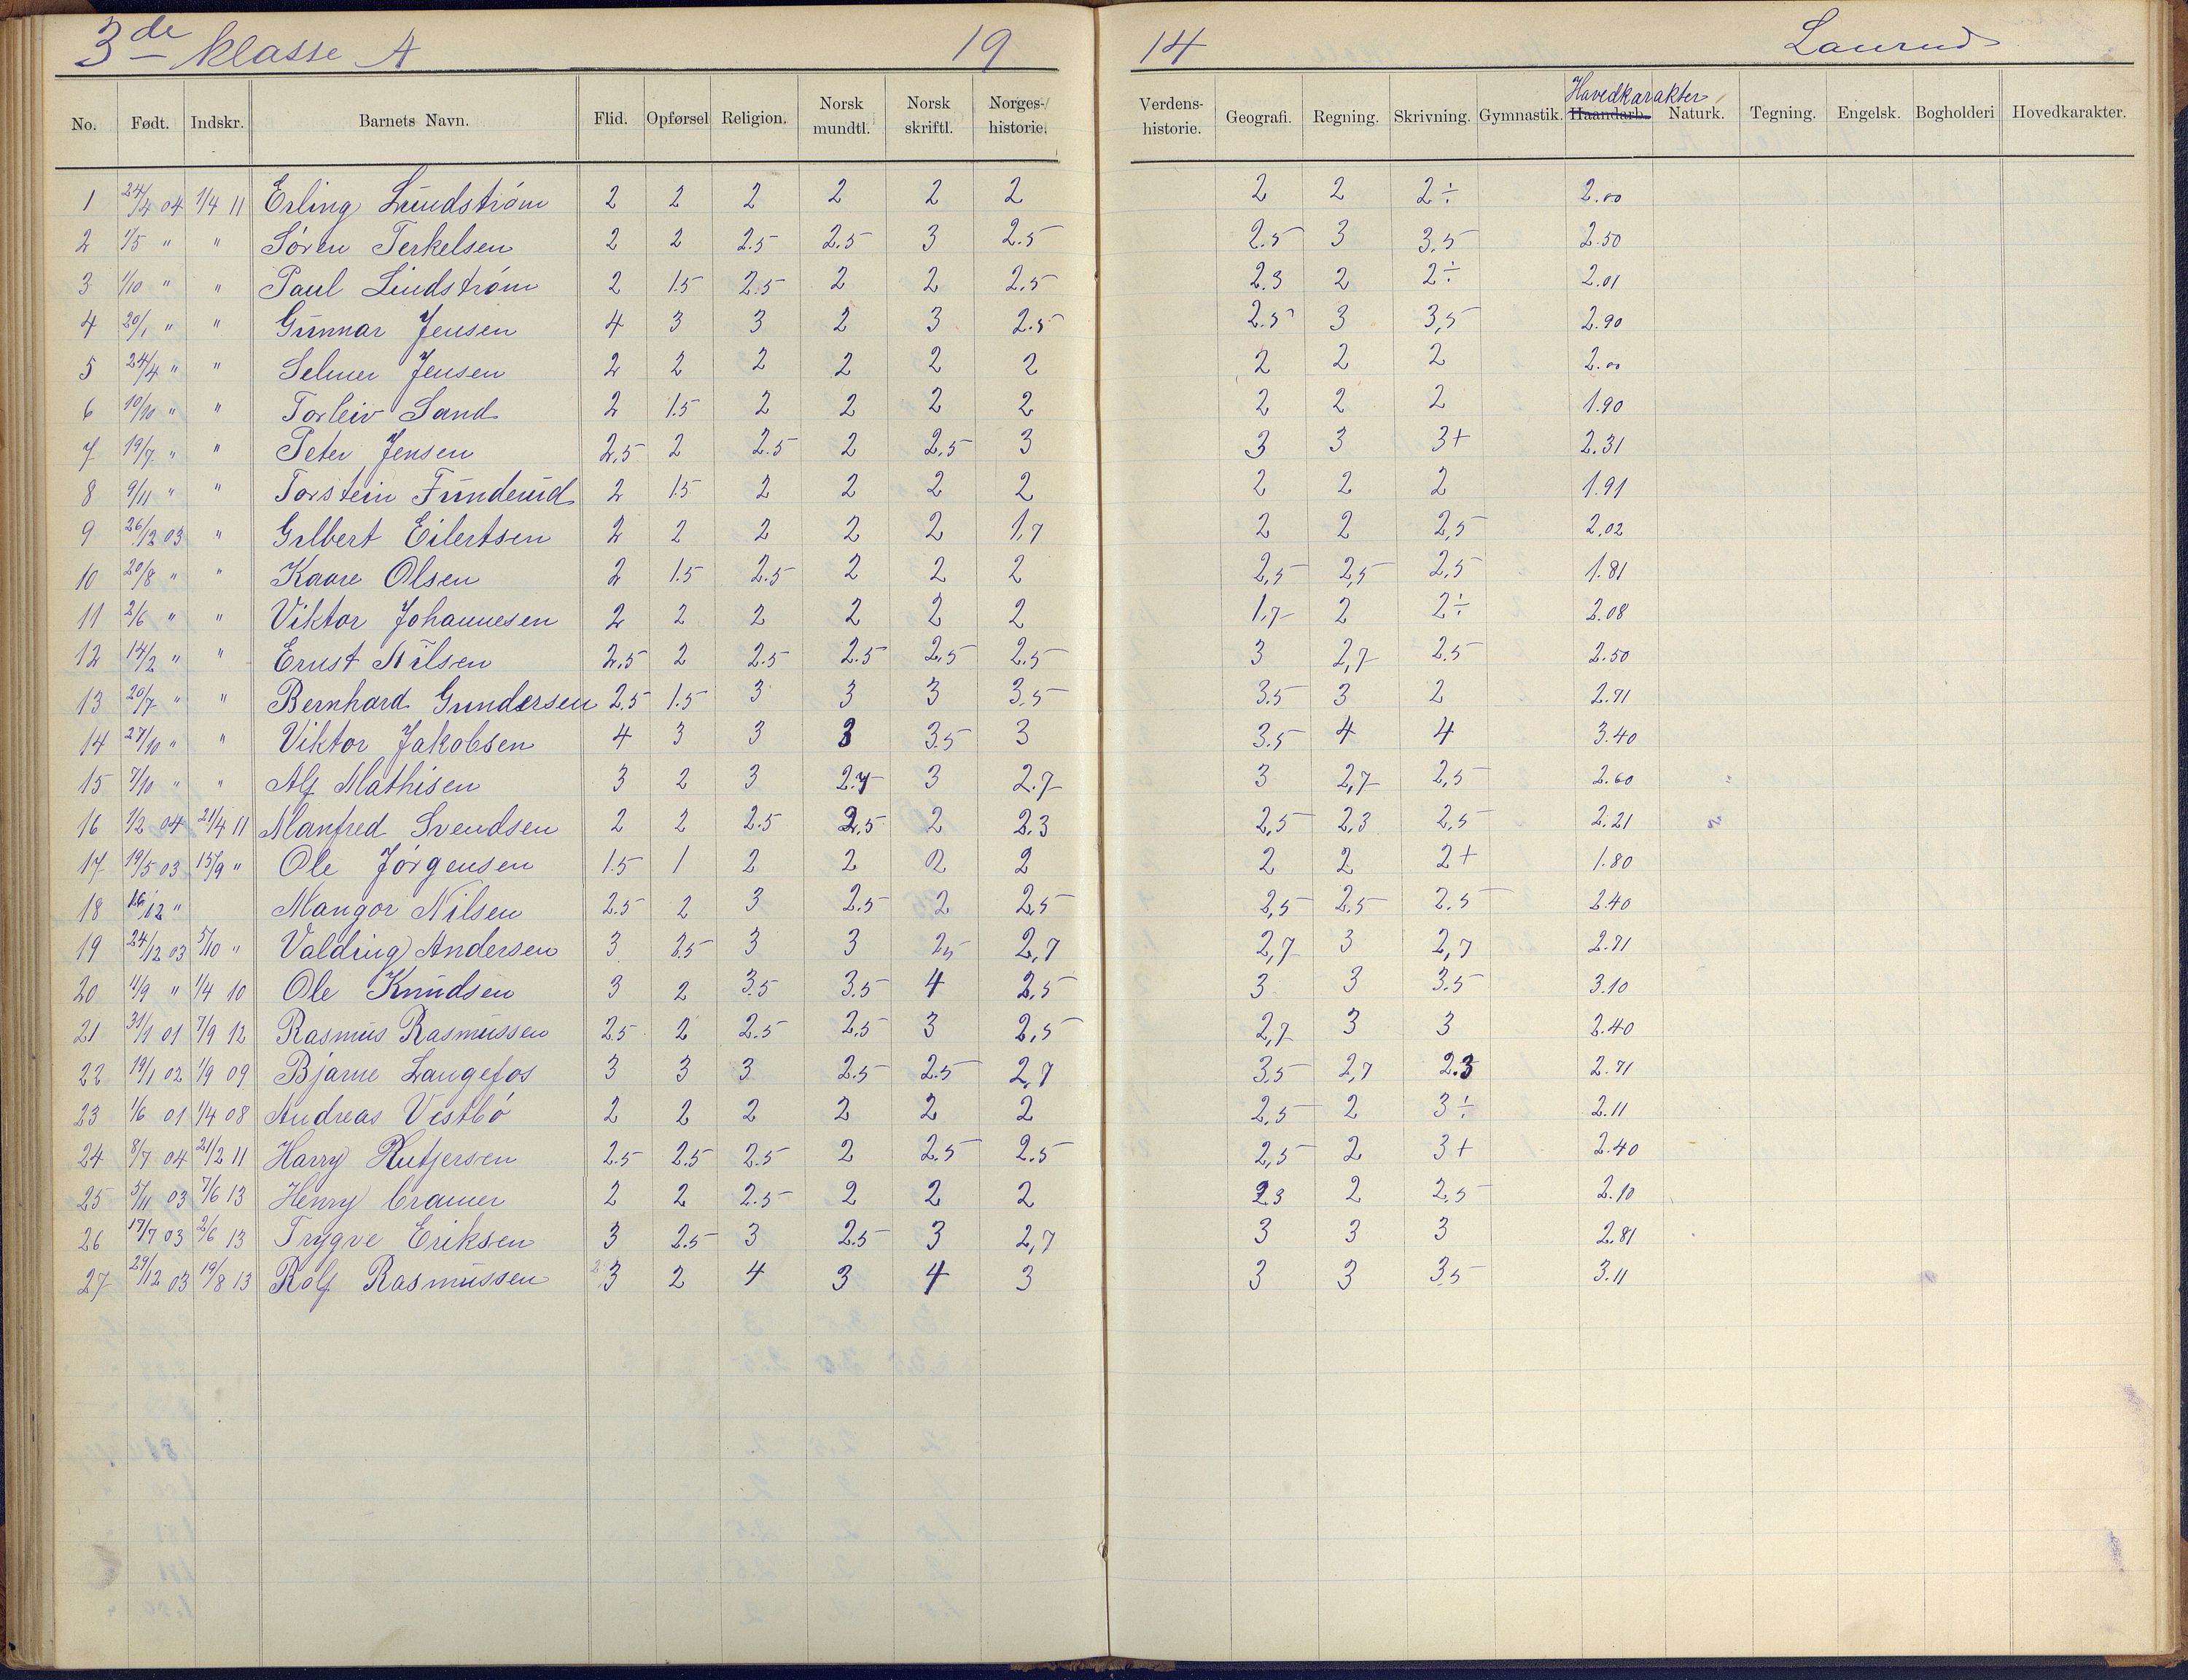 3de klasse A 19 14 Laurud
No. Født. Indskr. Barnets Navn. Flid. Opførsel Religion. Norsk mundtl. Norsk skriftl. Norges-historie. Verdens-historie. Geografi. Regning. Skrivning. Gymnastik. Haandarb. Hovedkarakter Naturk. Tegning. Engelsk. Bogholderi Hovedkarakter.
1 24/4 04 1/4 11 Erling Lundstrøm 2 2 2 2 2 2 2 2 2÷ 2.00
2 1/5 " " Søren Terkelsen 2 2 2.5 2.5 3 2.5 2.5 3 3.5 2.50
3 1/10 " " Paul Lindstrøm 2 1.5 2.5 2 2 2.5 2.3 2 2÷ 2.01
4 20/1 " " Gunnar Jensen 4 3 3 2 3 2.5 2.5 3 3,5 2.90
5 24/4 " " Selmer Jensen 2 2 2 2 2 2 2 2 2 2.00
6 10/10 " " Torleiv Sand 2 1.5 2 2 2 2 2 2 2 1.90
7 19/7 " " Peter Jensen 2,5 2 2.5 2 2,5 3 3 3 3+ 2.31
8 9/11 " " Torstein Funderud 2 1.5 2 2 2 2 2 2 2 1.91
9 26/12 03 " Gilbert Eilertsen 2 2 2 2 2 1,7 2 2 2,5 2,02
10 20/8 " " Kaare Olsen 2 1.5 2.5 2 2 2 2,5 2,5 2,5 1.81
11 2/6 " " Viktor Johannesen 2 2 2 2 2 2 1,7 2 2÷ 2.08
12 14/2 " " Ernst Nilsen 2,5 2 2.5 2.5 2,5 2,5 3 2,7 2.5 2.50
13 20/7 " " Bernhard Gundersen 2.5 1.5 3 3 3 3,5 3.5 3 2 2.71
14 27/10 " " Viktor Jakobsen 4 3 3 3 3.5 3 3.5 4 4 3.40
15 7/10 " " Alf Mathisen 3 2 3 2.7 3 2.7 3 2,7 2,5 2.60
16 1/2 04 21/4 11 Manfred Svendsen 2 2 2.5 2.5 2 2.3 2,5 2,3 2,5 2.21
17 19/5 03 15/9 " Ole Jørgensen 1.5 1 2 2 2 2 2 2 2+ 1.80
18 16/12 " Mangor Nilsen 2.5 2 3 2.5 2 2,5 2,5 2.5 2.5 2.40
19 24/12 03 5/10 " Valding Andersen 3 2.5 3 3 2,5 2,7 2,7 3 2,7 2.71
20 11/9 " 1/4 10 Ole Knudsen 3 2 3.5 3.5 4 2,5 3 3 3.5 3.10
21 31/1 01 7/9 12 Rasmus Rasmussen 2.5 2 2.5 2.5 3 2,5 2,7 3 3 2.40
22 19/1 02 1/9 09 Bjarne Langefos 3 3 3 2.5 2.5 2,7 3,5 2,7 2.3 2.71
23 1/6 01 1/4 08 Andreas Vestbø 2 2 2 2 2 2 2,5 2 3÷ 2.11
24 8/7 04 21/2 11 Harry Rutjersen 2.5 2.5 2.5 2 2.5 2.5 2,5 2 3+ 2.40
25 5/11 03 7/6 13 Henry Cramer 2 2 2.5 2 2 2 2.3 2 2,5 2.10
26 17/7 03 2/6 13 Trygve Eriksen 3 2.5 3 2.5 3 2,7 3 3 3 2.81
27 29/12 03 19/8 13 Rolf Rasmussen 3 2 4 3 4 3 3 3 3.5 3.11